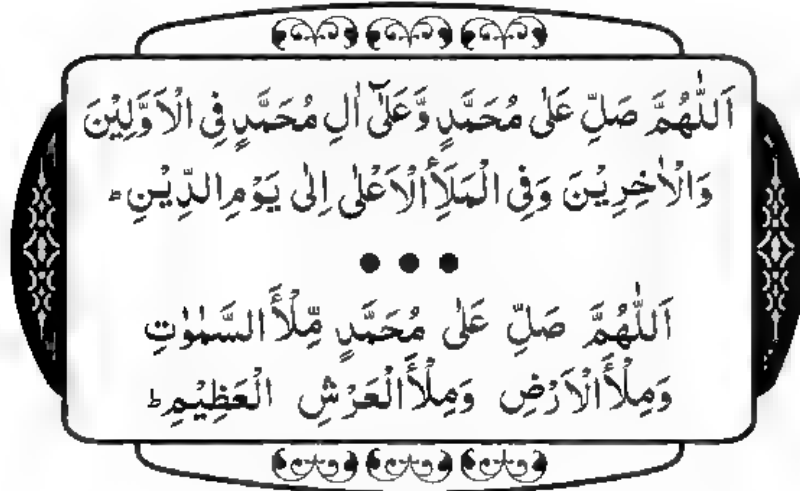 اَللّٰهُمَّ صَلِّ عَلٰى مُحَمَّدٍ وَّعَلٰٓى اٰلِ مُحَمَّدٍ فِى الْاَوَّلِيْنَ
وَالْاٰخِرِيْنَ وَفِى الْمَلَأِ الْاَعْلٰى اِلٰى يَوْمِ الدِّيْنِ ؕ
اَللّٰهُمَّ صَلِّ عَلٰى مُحَمَّدٍ مِّلْأَ السَّمٰوٰتِ
وَمِلْأَ الْاَرْضِ وَمِلْأَ الْعَرْشِ الْعَظِيْمِ ؕ